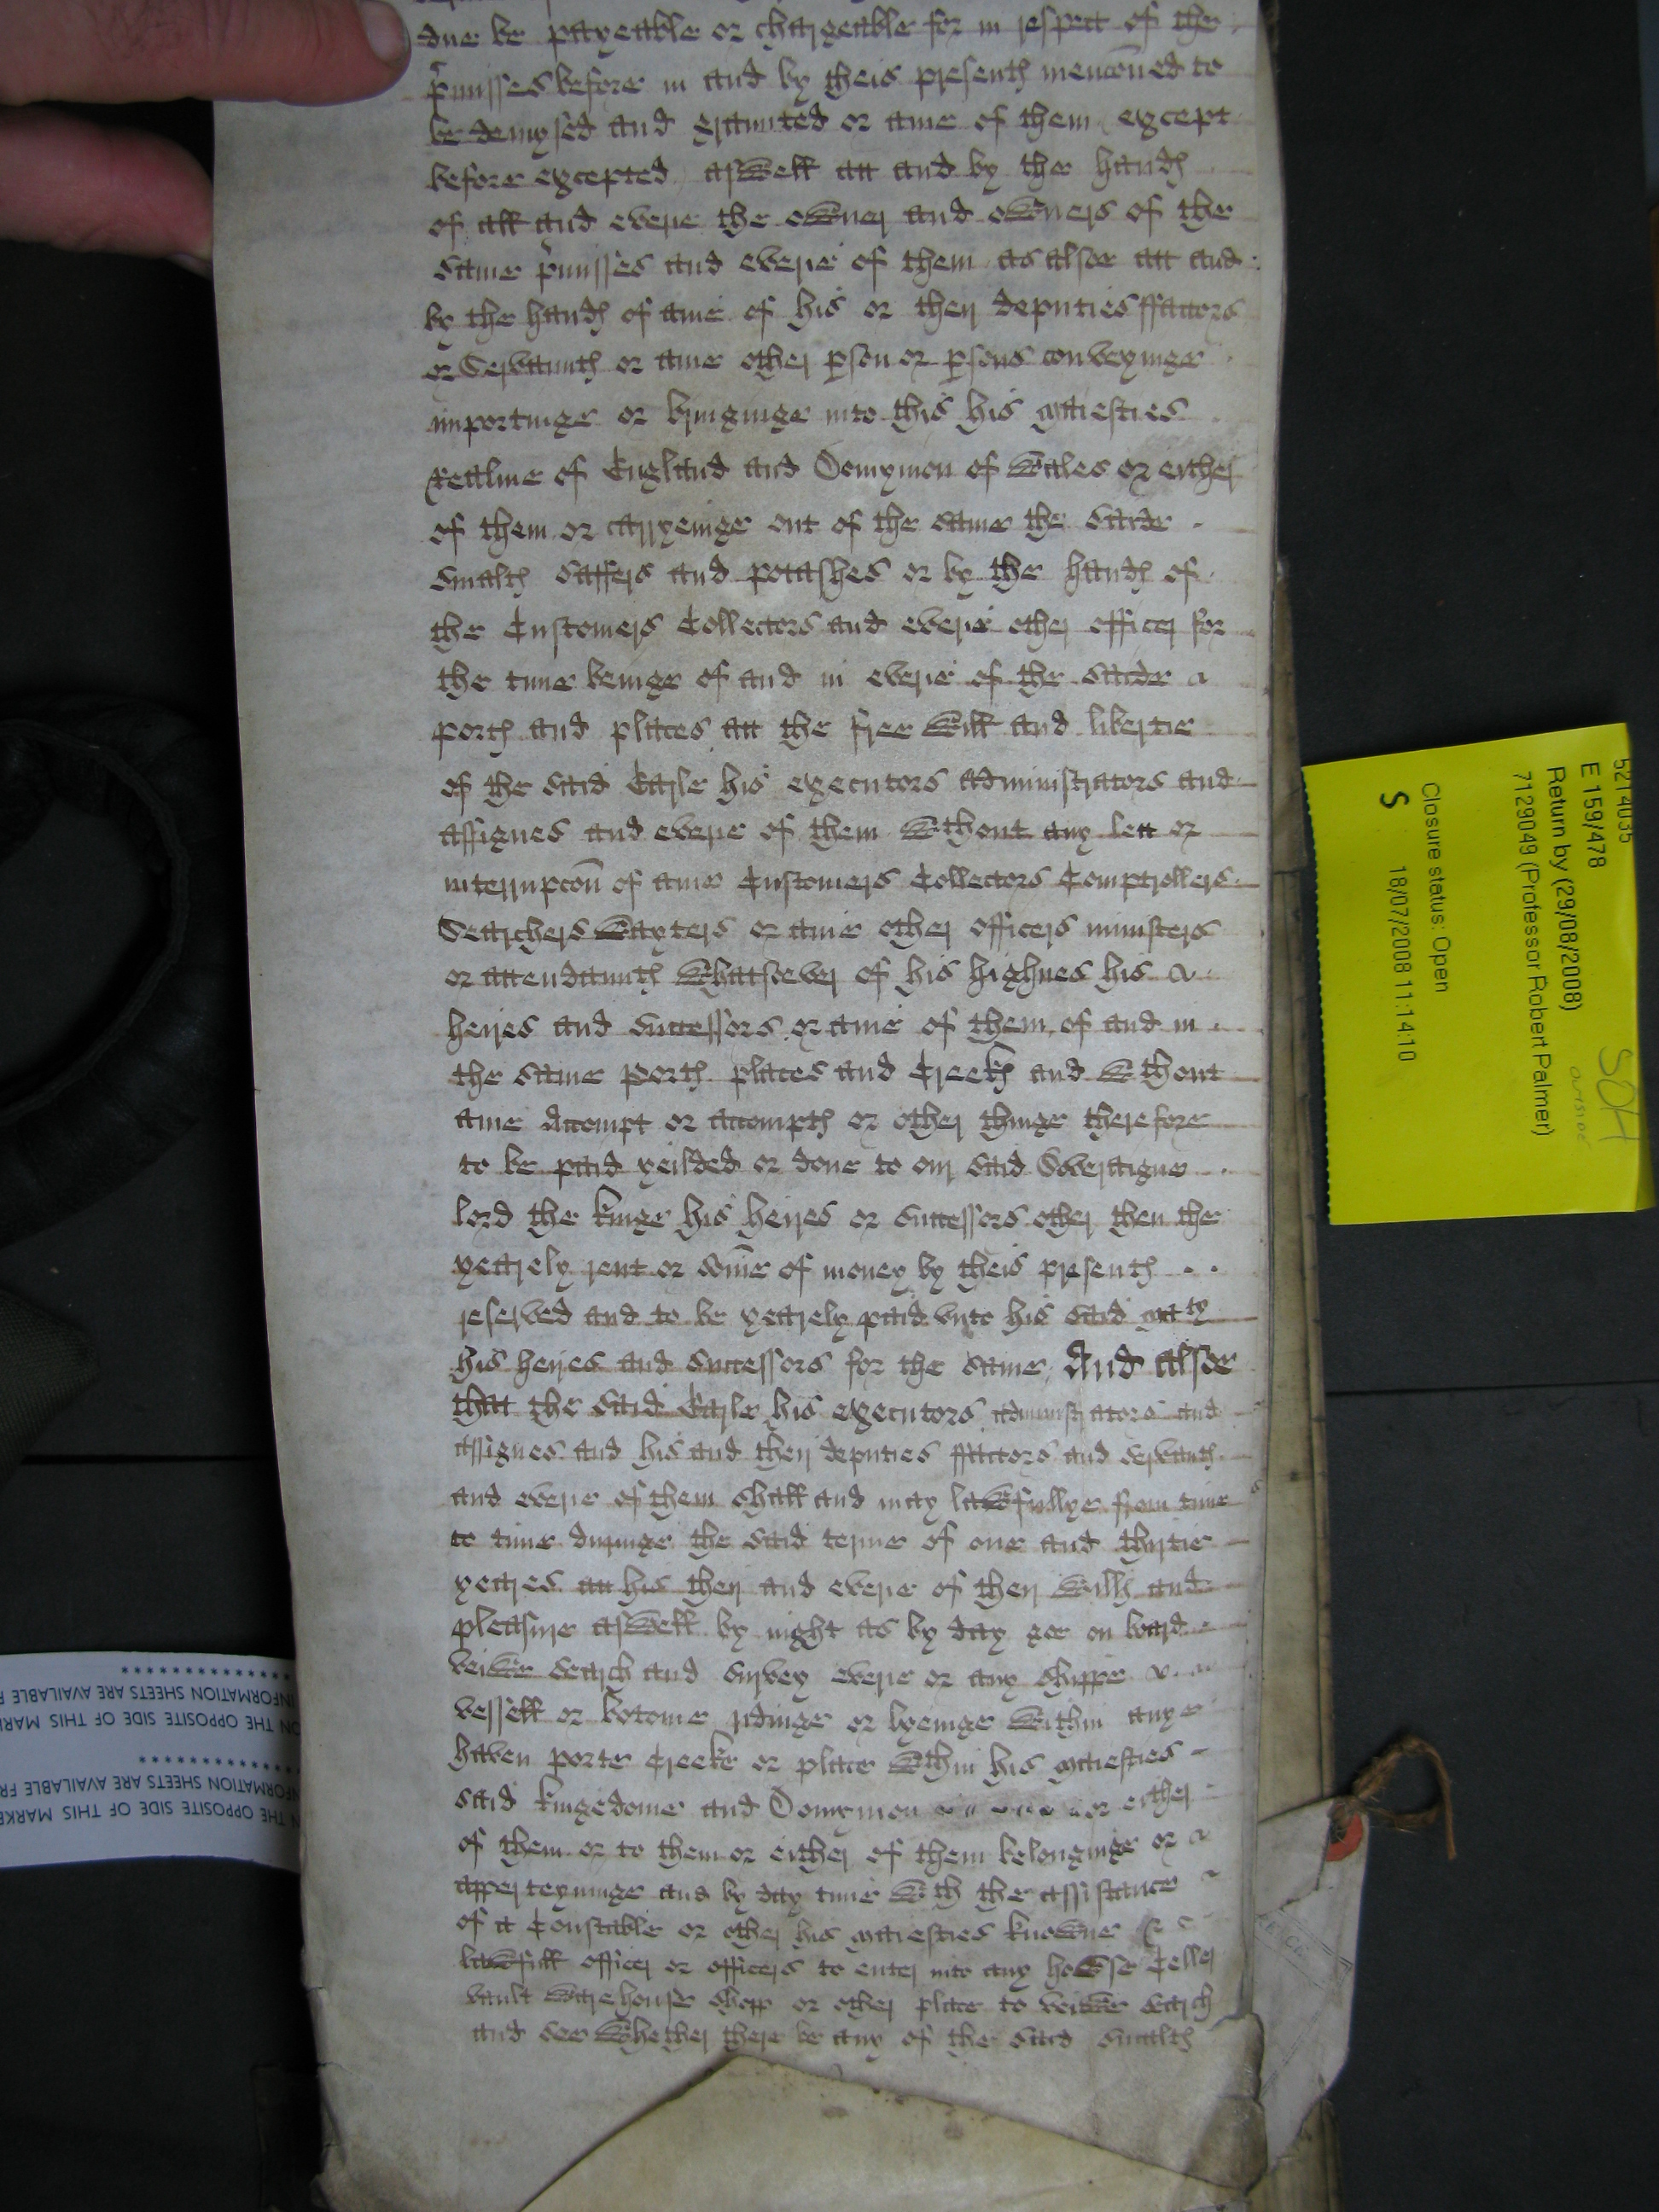 due be payeable or chargeable for in respect of the
p'misses before in and by theis presents mencōned to
be demysed and graunted or anie of them except
before excepted aswell att and by the hands
of all and everie the owner and owners of the
same p'misses and everie of them as alsoe att and
by the hands of anie of his or their deputies ffactors
or Servaunts or anie other pson or psons conveyinge
importinge or bringinge into this his maiesties
realme of England and Domynion of Wales or either
of them or carryeinge out of the same the saide
smalts saffers and potashes or by the hands of
the Customers Collectors and everie other officer for
the time beinge of and in everie of the saide
ports and places att the free will and libertie
of the said Earle his executors administrators and
assignes and everie of them wthout any lett or
interrupcōn of anie Customers Collectors Comptrollers
Searchers Wayters or anie other officers ministers
or attendaunts whatsoever of his highnes his
heires and successors or anie of them of and in
the same ports places and Creeks and wthout
anie Accompt or accompts or other thinge therefore
to be paid yeilded or done to our said Soveraigne
lord the kinge his heires or successors other then the
yearely rent or som̄e of money by theis presents
reserved and to be yearely paid vnto his said maty
his heires and successors for the same And alsoe
that the said Earle his executors administrators and
assignes and his and their deputies ffactors and servants
and everie of them shall and may lawfullye from time
to time duringe the said terme of one and thirtie
yeares att his their and everie of their wills and
pleasure aswell by night as by day goe on board
veiwe search and survey everie or any shippe
vessell or botome ridinge or lyeinge within anye
haven porte Creeke or place wthin his maiesties
said kingedome and Domynion or either
of them or to them or either of them belonginge or
apperteyninge and by day time wth the assistance
of a Constable or other his maiesties knowne
lawfull officer or officers to enter into any howse Celler
vault warehouse shopp or other place to veiwe search
and see whether there be any of the said smalts
5214035
E 159/478
Return by (29/08/2008)
7129049 (Professor Robert Palmer)
Closure status: Open
S 18/07/2008 11:14:10
INFORMATION SHEETS ARE AVAILABLE
ON THE OPPOSITE SIDE OF THIS
INFORMATION SHEETS ARE AVAILABLE
THE OPPOSITE SIDE OF THIS